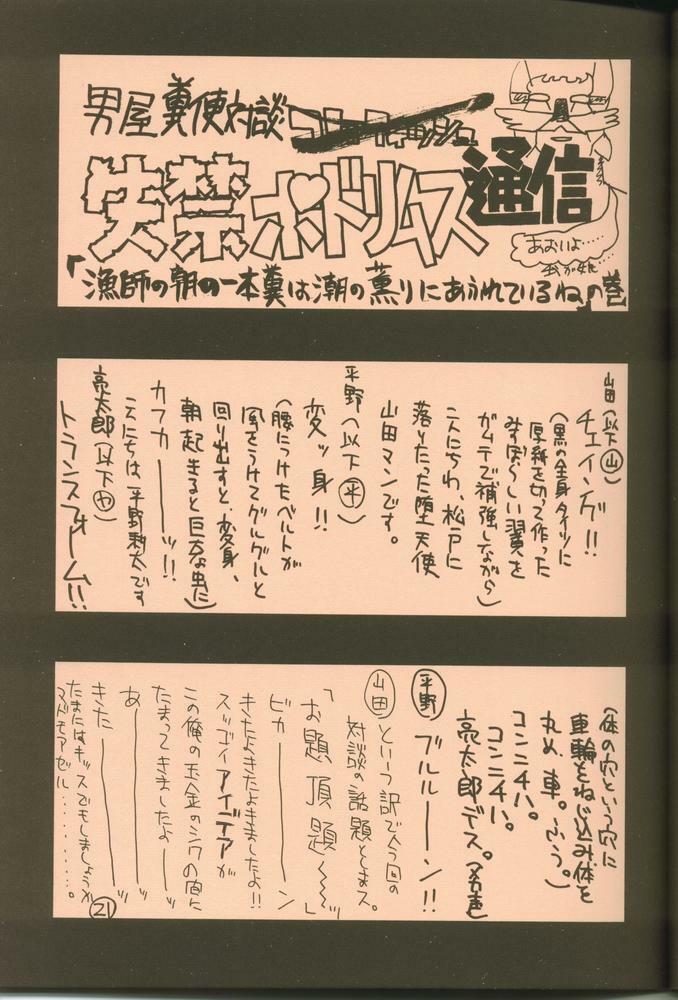 男屋糞便対談
失禁ボドリムス通信
あおいよ……
我が娘…
「漁師の朝の一本糞は潮の薫りにあふれているね」の巻
山田(以下㊤山)
チェイング!!
(黒の全身タイツに
厚紙を切って作った
みすぼらしい翼を
ガムテで補強しながら)
こんにちわ、松戸に
落りたった堕天使
山田マンです。
平野(以下平)
変ッ身!!
(腰につけたベルトが
風をうけてグルグルと
回り出すと、変身、
朝起きると巨大な虫に)
カフカーーッ!!
こんにちは、平野耕太です
亮太郎(以下や)
トランスフォーム!!
(体の穴という穴に
車輪をねじ込み体を
丸め、車。ふう。)
コンニチハ。
コンニチハ。
亮太郎デス。(名声)
平野 ブルルーーン!!
山田 という訳で今回の
対談の話題としまス。
「お題頂題〜〜」
ビカーーーーン
きたよきたよきましたよ!!
スッゴイアイデアが
この俺の玉金のシワの間に
たまってきましたよーッ
あーーーッ
きたーーーーッ
たまにはキッスでもしましょうか
マドモアゼル………。
21